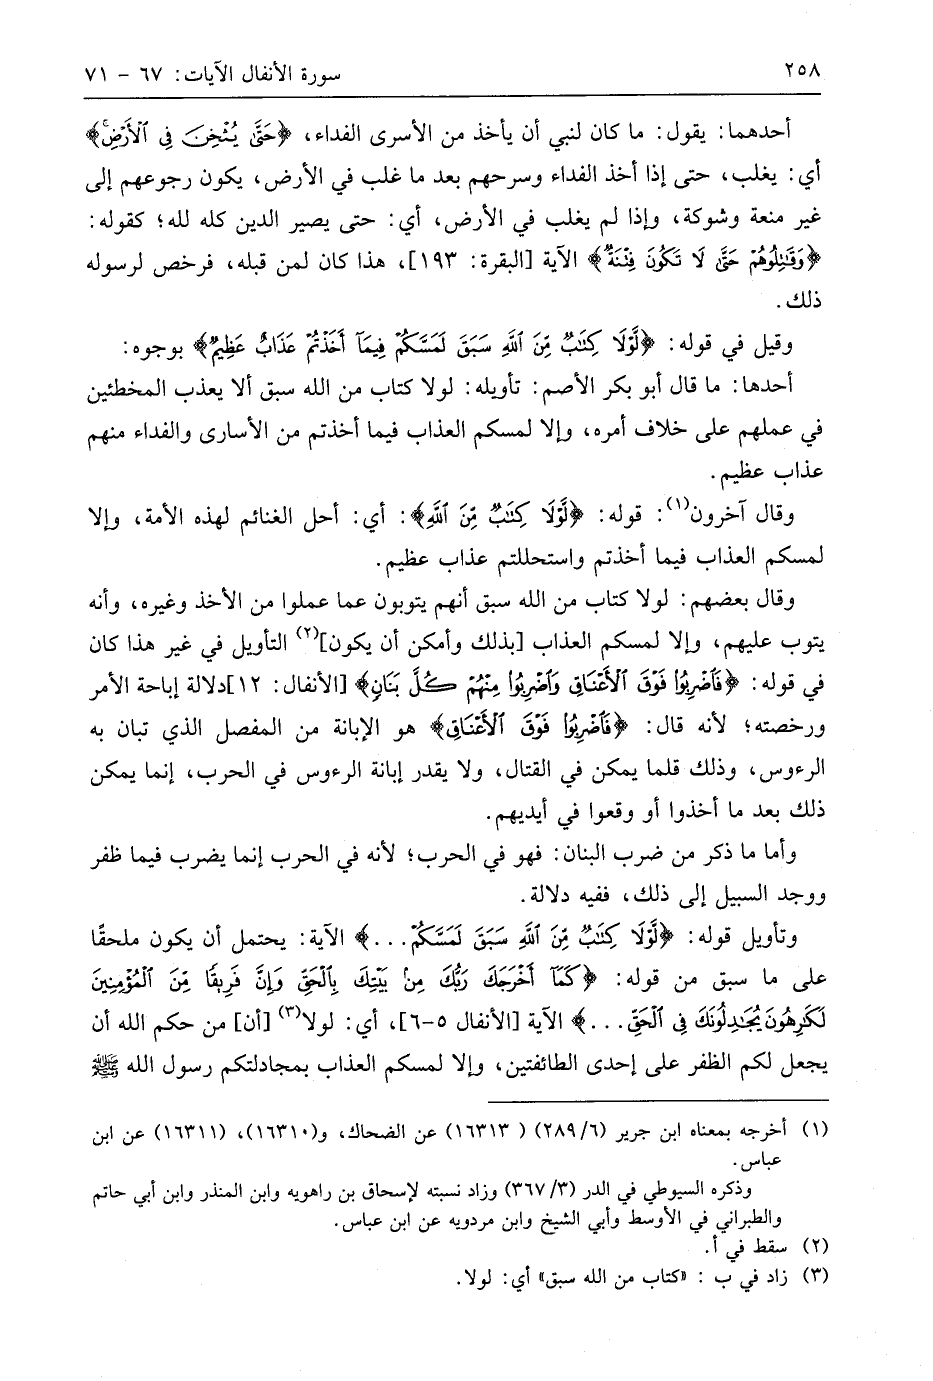 ٢٥٨
سورة الأنفال الآيات: ٦٧ - ٧١
أحدهما: يقول: ما كان لنبي أن يأخذ من الأسرى الفداء، ﴿حَتَّىٰ يُثْخِنَ فِي ٱلْأَرْضِ﴾
أي: يغلب، حتى إذا أخذ الفداء وسرحهم بعد ما غلب في الأرض، يكون رجوعهم إلى
غير منعة وشوكة، وإذا لم يغلب في الأرض، أي: حتى يصير الدين كله لله؛ كقوله:
﴿وَقَٰتِلُوهُمْ حَتَّىٰ لَا تَكُونَ فِتْنَةٌ﴾ الآية [البقرة: ١٩٣]، هذا كان لمن قبله، فرخص لرسوله
ذلك.
وقيل في قوله: ﴿لَّوْلَا كِتَٰبٌ مِّنَ ٱللَّهِ سَبَقَ لَمَسَّكُمْ فِيمَآ أَخَذْتُمْ عَذَابٌ عَظِيمٌ﴾ بوجوه:
أحدها: ما قال أبو بكر الأصم: تأويله: لولا كتاب من الله سبق ألا يعذب المخطئين
في عملهم على خلاف أمره، وإلا لمسكم العذاب فيما أخذتم من الأسارى والفداء منهم
عذاب عظيم.
وقال آخرون(١): قوله: ﴿لَّوْلَا كِتَٰبٌ مِّنَ ٱللَّهِ﴾: أي: أحل الغنائم لهذه الأمة، وإلا
لمسكم العذاب فيما أخذتم واستحللتم عذاب عظيم.
وقال بعضهم: لولا كتاب من الله سبق أنهم يتوبون عما عملوا من الأخذ وغيره، وأنه
يتوب عليهم، وإلا لمسكم العذاب [بذلك وأمكن أن يكون](٢) التأويل في غير هذا كان
في قوله: ﴿فَٱضْرِبُوا فَوْقَ ٱلْأَعْنَاقِ وَٱضْرِبُوا مِنْهُمْ كُلَّ بَنَانٍ﴾ [الأنفال: ١٢]دلالة إباحة الأمر
ورخصته؛ لأنه قال: ﴿فَٱضْرِبُوا فَوْقَ ٱلْأَعْنَاقِ﴾ هو الإبانة من المفصل الذي تبان به
الرءوس، وذلك قلما يمكن في القتال، ولا يقدر إبانة الرءوس في الحرب، إنما يمكن
ذلك بعد ما أخذوا أو وقعوا في أيديهم.
وأما ما ذكر من ضرب البنان: فهو في الحرب؛ لأنه في الحرب إنما يضرب فيما ظفر
ووجد السبيل إلى ذلك، ففيه دلالة.
وتأويل قوله: ﴿لَّوْلَا كِتَٰبٌ مِّنَ ٱللَّهِ سَبَقَ لَمَسَّكُمْ...﴾ الآية: يحتمل أن يكون ملحقًا
على ما سبق من قوله: ﴿كَمَآ أَخْرَجَكَ رَبُّكَ مِنۢ بَيْتِكَ بِٱلْحَقِّ وَإِنَّ فَرِيقًا مِّنَ ٱلْمُؤْمِنِينَ
لَكَٰرِهُونَ يُجَٰدِلُونَكَ فِي ٱلْحَقِّ...﴾ الآية [الأنفال ٥-٦]، أي: لولا(٣) [أن] من حكم الله أن
يجعل لكم الظفر على إحدى الطائفتين، وإلا لمسكم العذاب بمجادلتكم رسول الله ﷺ
(١) أخرجه بمعناه ابن جرير (٢٨٩/٦) ( ١٦٣١٣) عن الضحاك، و(١٦٣١٠)، (١٦٣١١) عن ابن
عباس.
وذكره السيوطي في الدر (٣٦٧/٣) وزاد نسبته لإسحاق بن راهويه وابن المنذر وابن أبي حاتم
والطبراني في الأوسط وأبي الشيخ وابن مردويه عن ابن عباس.
(٢) سقط في أ.
(٣) زاد في ب : «كتاب من الله سبق» أي: لولا.